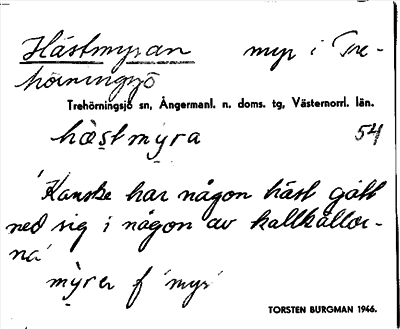 Hästmyran myr i Tre-
hörningsjö
Trehörningsjö sn, Ångermanl. n. doms. tg, Västernorrl. län.
hæstmyra 54
'Kanske har någon häst gått
ned sig i någon av kallkällor-
na'
myrer f 'myr'
TORSTEN BURGMAN 1946.